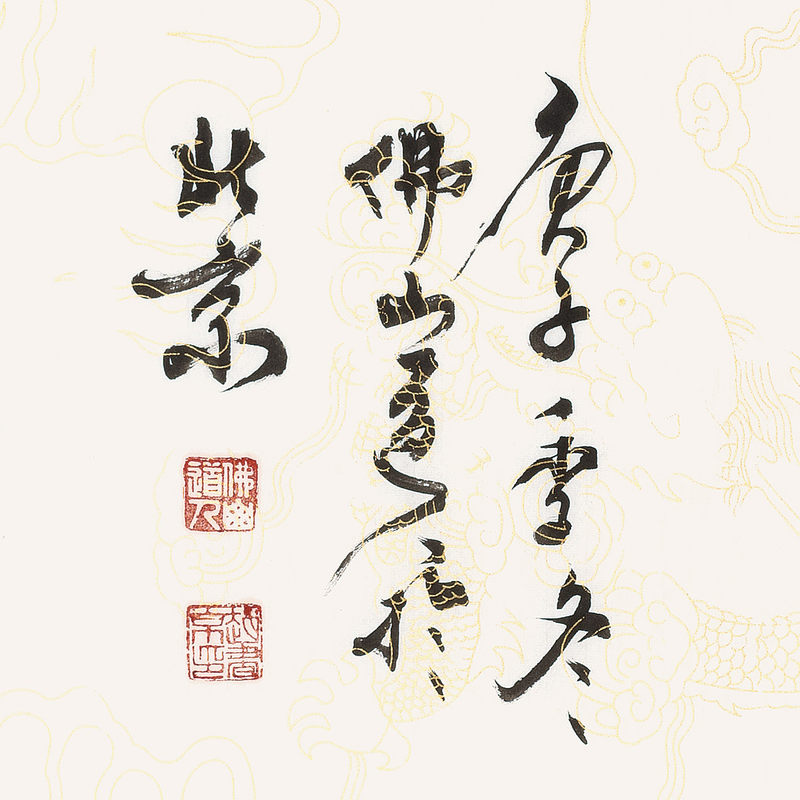 庚子雪冬
佛山道人於
北京
佛山道人